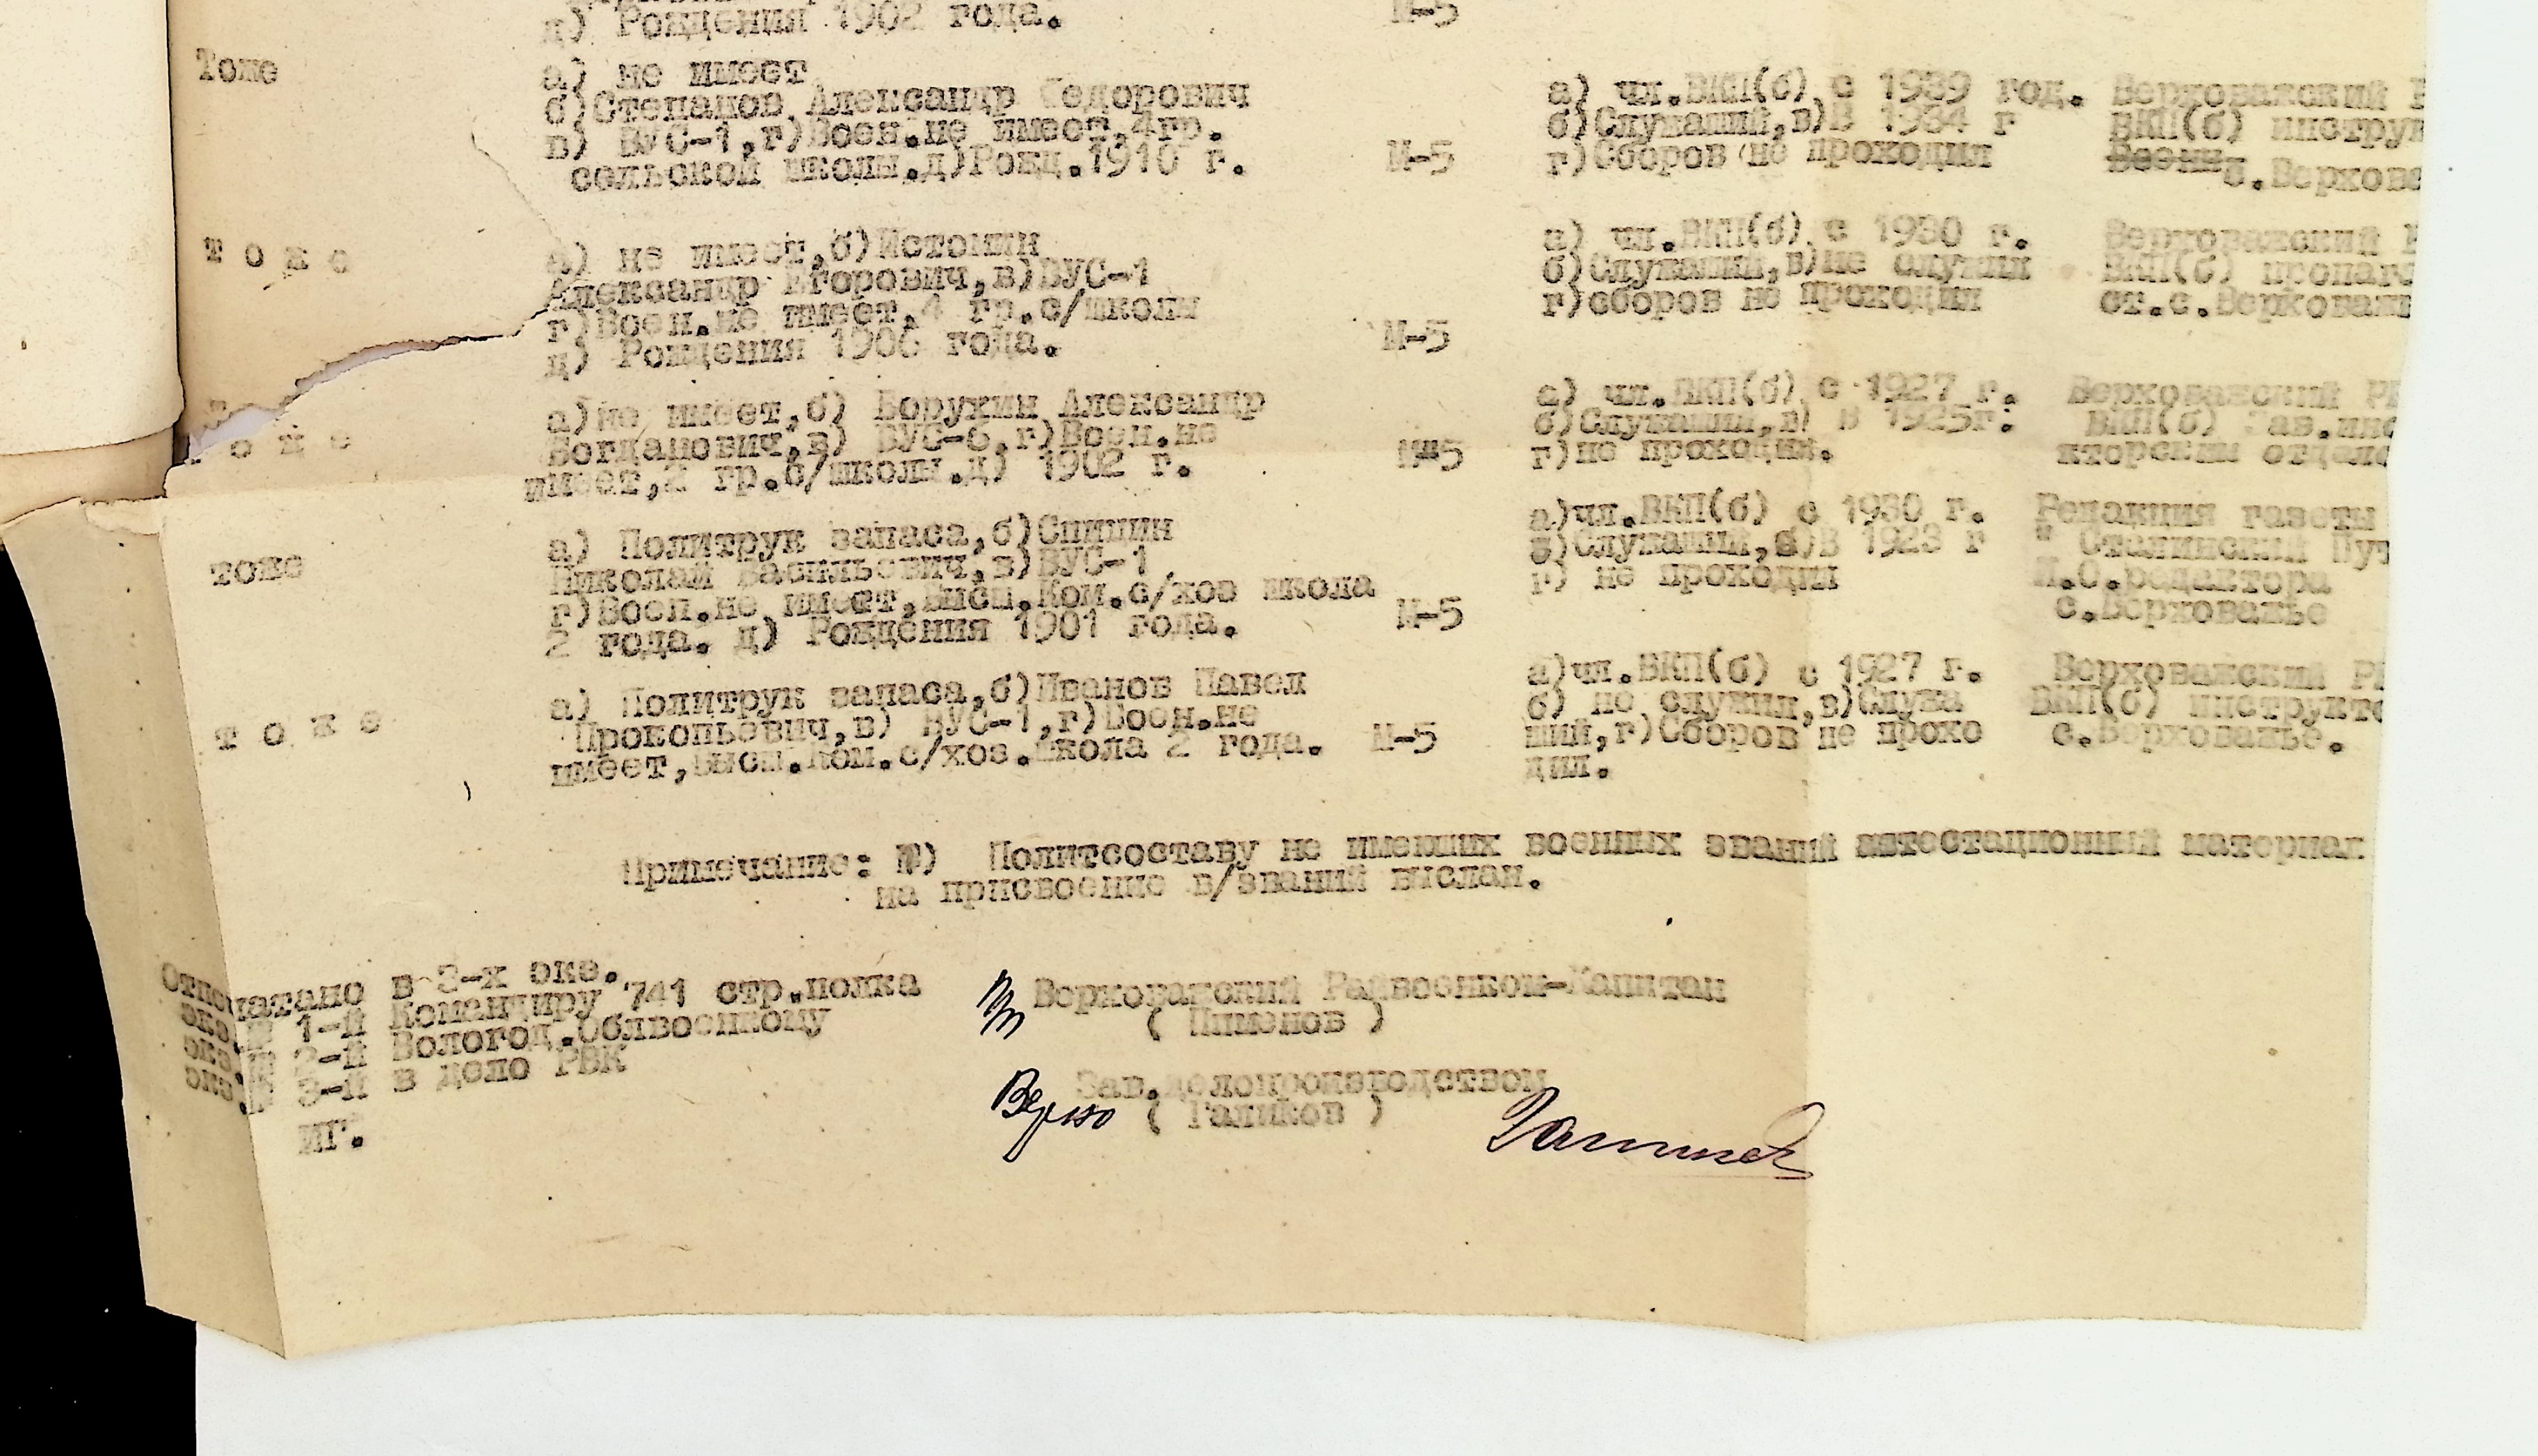 д) Рождения 1902 года.
М-5
Тоже
а) не имеет
б)Степанов Александр Федорович
в) ВУС-1,г)Воен.не имеет,4гр.
сельской школы.д)Рожд.1910 г.
М-5
а) чл.ВКП(б) с 1939 год.
б)Служащий,в)В 1934 г
г)Сборов не проходил
Верховажский Р
ВКП(б) инструк
с.Верхова
т о ж е
а) не имеет,б)Истомин
Александр Егорович,в)ВУС-1
г)Воен.не имеет,4 гр.с/школы
д) Рождения 1906 года.
М-5
а) чл.ВКП(б) с 1930 г.
б)Служащий,в)не служил
г)сборов не проходил
Верховажский Р
ВКП(б) пропаг
ст.с.Верховаж
т о ж е
а)не имеет,б) Борухин Александр
Богданович,в) ВУС-6,г)Воен.не
имеет,2 гр.с/школы.д) 1902 г.
М-5
а) чл.ВКП(б) с 1927 г.
б)Служащий,в) В 1925г:
г)не проходил.
Верховажский РК
ВКП(б) ав.инс
кторским отдело
тоже
а) Политрук запаса,б)Спицин
Николай Васильевич,в)ВУС-1
г)Воен.не имеет,Высш.Ком.с/хоз школа
2 года. д) Рождения 1901 года.
М-5
а)чл.ВКП(б) с 1930 г.
б)Служащий,в)В 1923 г
г) не проходил
Редакция газеты
" Сталинский Пут
И.О.редактора
с.Верховажье
т о ж е
а) Политрук запаса,б)Иванов Павел
Прокопьевич,в) ВУС-1,г)Воен.не
имеет,Высш.Ком.с/хоз.школа 2 года.
М-5
а)чл.ВКП(б) с 1927 г.
б) не служил,в)Служа
щий,г)Сборов не прохо
дил.
Верховажский РК
ВКП(б) инструкто
с.Верховажье.
Примечание: Политсоставу не имевших военных званий аттестационный материал
на присвоение в/званий выслан.
Отпечатано в 3-х экз.
экз.№ 1-й Командиру 741 стр.полка
экз.№ 2-й Вологод.Облвоенкому
экз.№ 3-й в дело РВК
МГ.
Верховажский Райвоенком-Капитан
( Пименов )
Зав.делопроизводством
Верно ( Галиков )